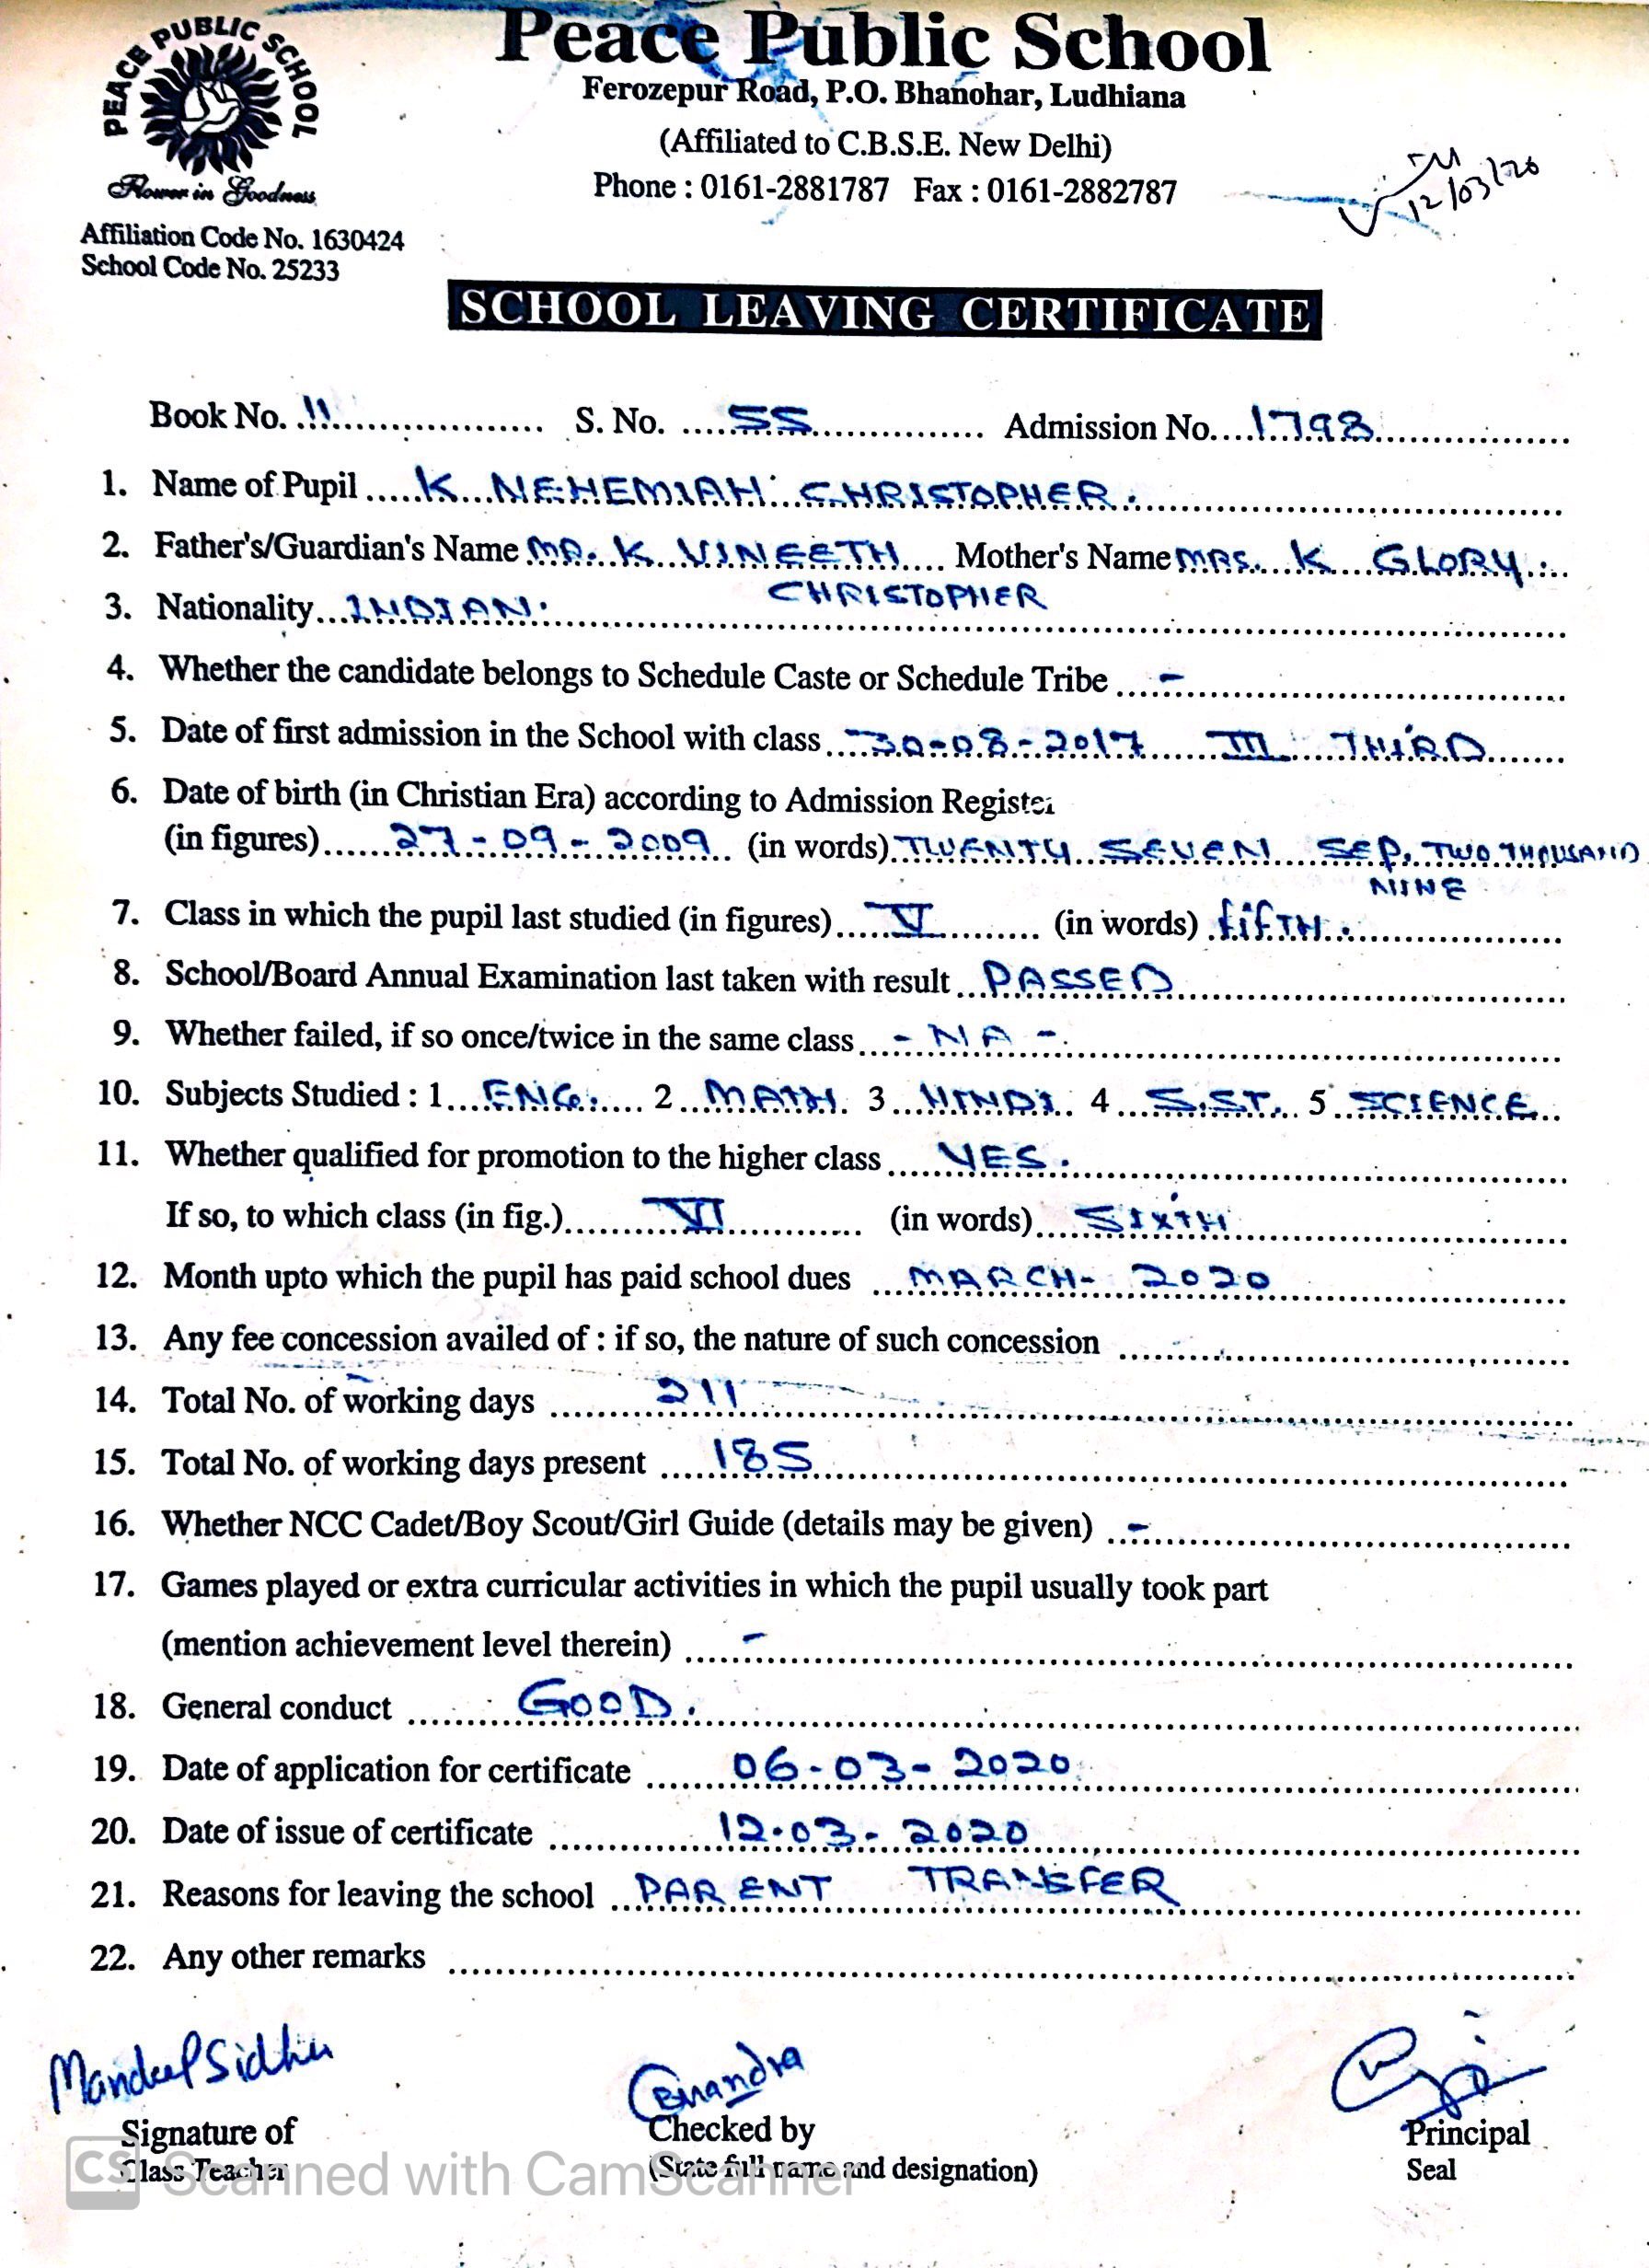 PEACE PUBLIC SCHOOL
Flower in Goodness
Peace Public School
Ferozepur Road, P.O. Bhanohar, Ludhiana
(Affiliated to C.B.S.E. New Delhi)
Phone : 0161-2881787 Fax : 0161-2882787
12/03/20
Affiliation Code No. 1630424
School Code No. 25233
SCHOOL LEAVING CERTIFICATE
Book No. 11 S. No. 55 Admission No. 1798
1. Name of Pupil K NEHEMIAH CHRISTOPHER.
2. Father's/Guardian's Name MR. K VINEETH Mother's Name MRS. K GLORY.
CHRISTOPHER
3. Nationality INDIAN.
4. Whether the candidate belongs to Schedule Caste or Schedule Tribe -
5. Date of first admission in the School with class 30-08-2017 III THIRD
6. Date of birth (in Christian Era) according to Admission Register
(in figures) 27-09-2009 (in words) TWENTY SEVEN SEP. TWO THOUSAND
NINE
7. Class in which the pupil last studied (in figures) V (in words) fifTH.
8. School/Board Annual Examination last taken with result PASSED
9. Whether failed, if so once/twice in the same class - NA -
10. Subjects Studied : 1 ENG. 2 MATH. 3 HINDI 4 S.ST. 5 SCIENCE
11. Whether qualified for promotion to the higher class YES.
If so, to which class (in fig.) VI (in words) SIXTH
12. Month upto which the pupil has paid school dues MARCH- 2020
13. Any fee concession availed of : if so, the nature of such concession
14. Total No. of working days 211
15. Total No. of working days present 185
16. Whether NCC Cadet/Boy Scout/Girl Guide (details may be given) -
17. Games played or extra curricular activities in which the pupil usually took part
(mention achievement level therein) -
18. General conduct GOOD.
19. Date of application for certificate 06-03-2020
20. Date of issue of certificate 12.03-2020
21. Reasons for leaving the school PARENT TRANSFER
22. Any other remarks
Mandeep Sidhu
Signature of Checked by Principal
Class Teacher (State full name and designation) Seal
CS Scanned with CamScanner